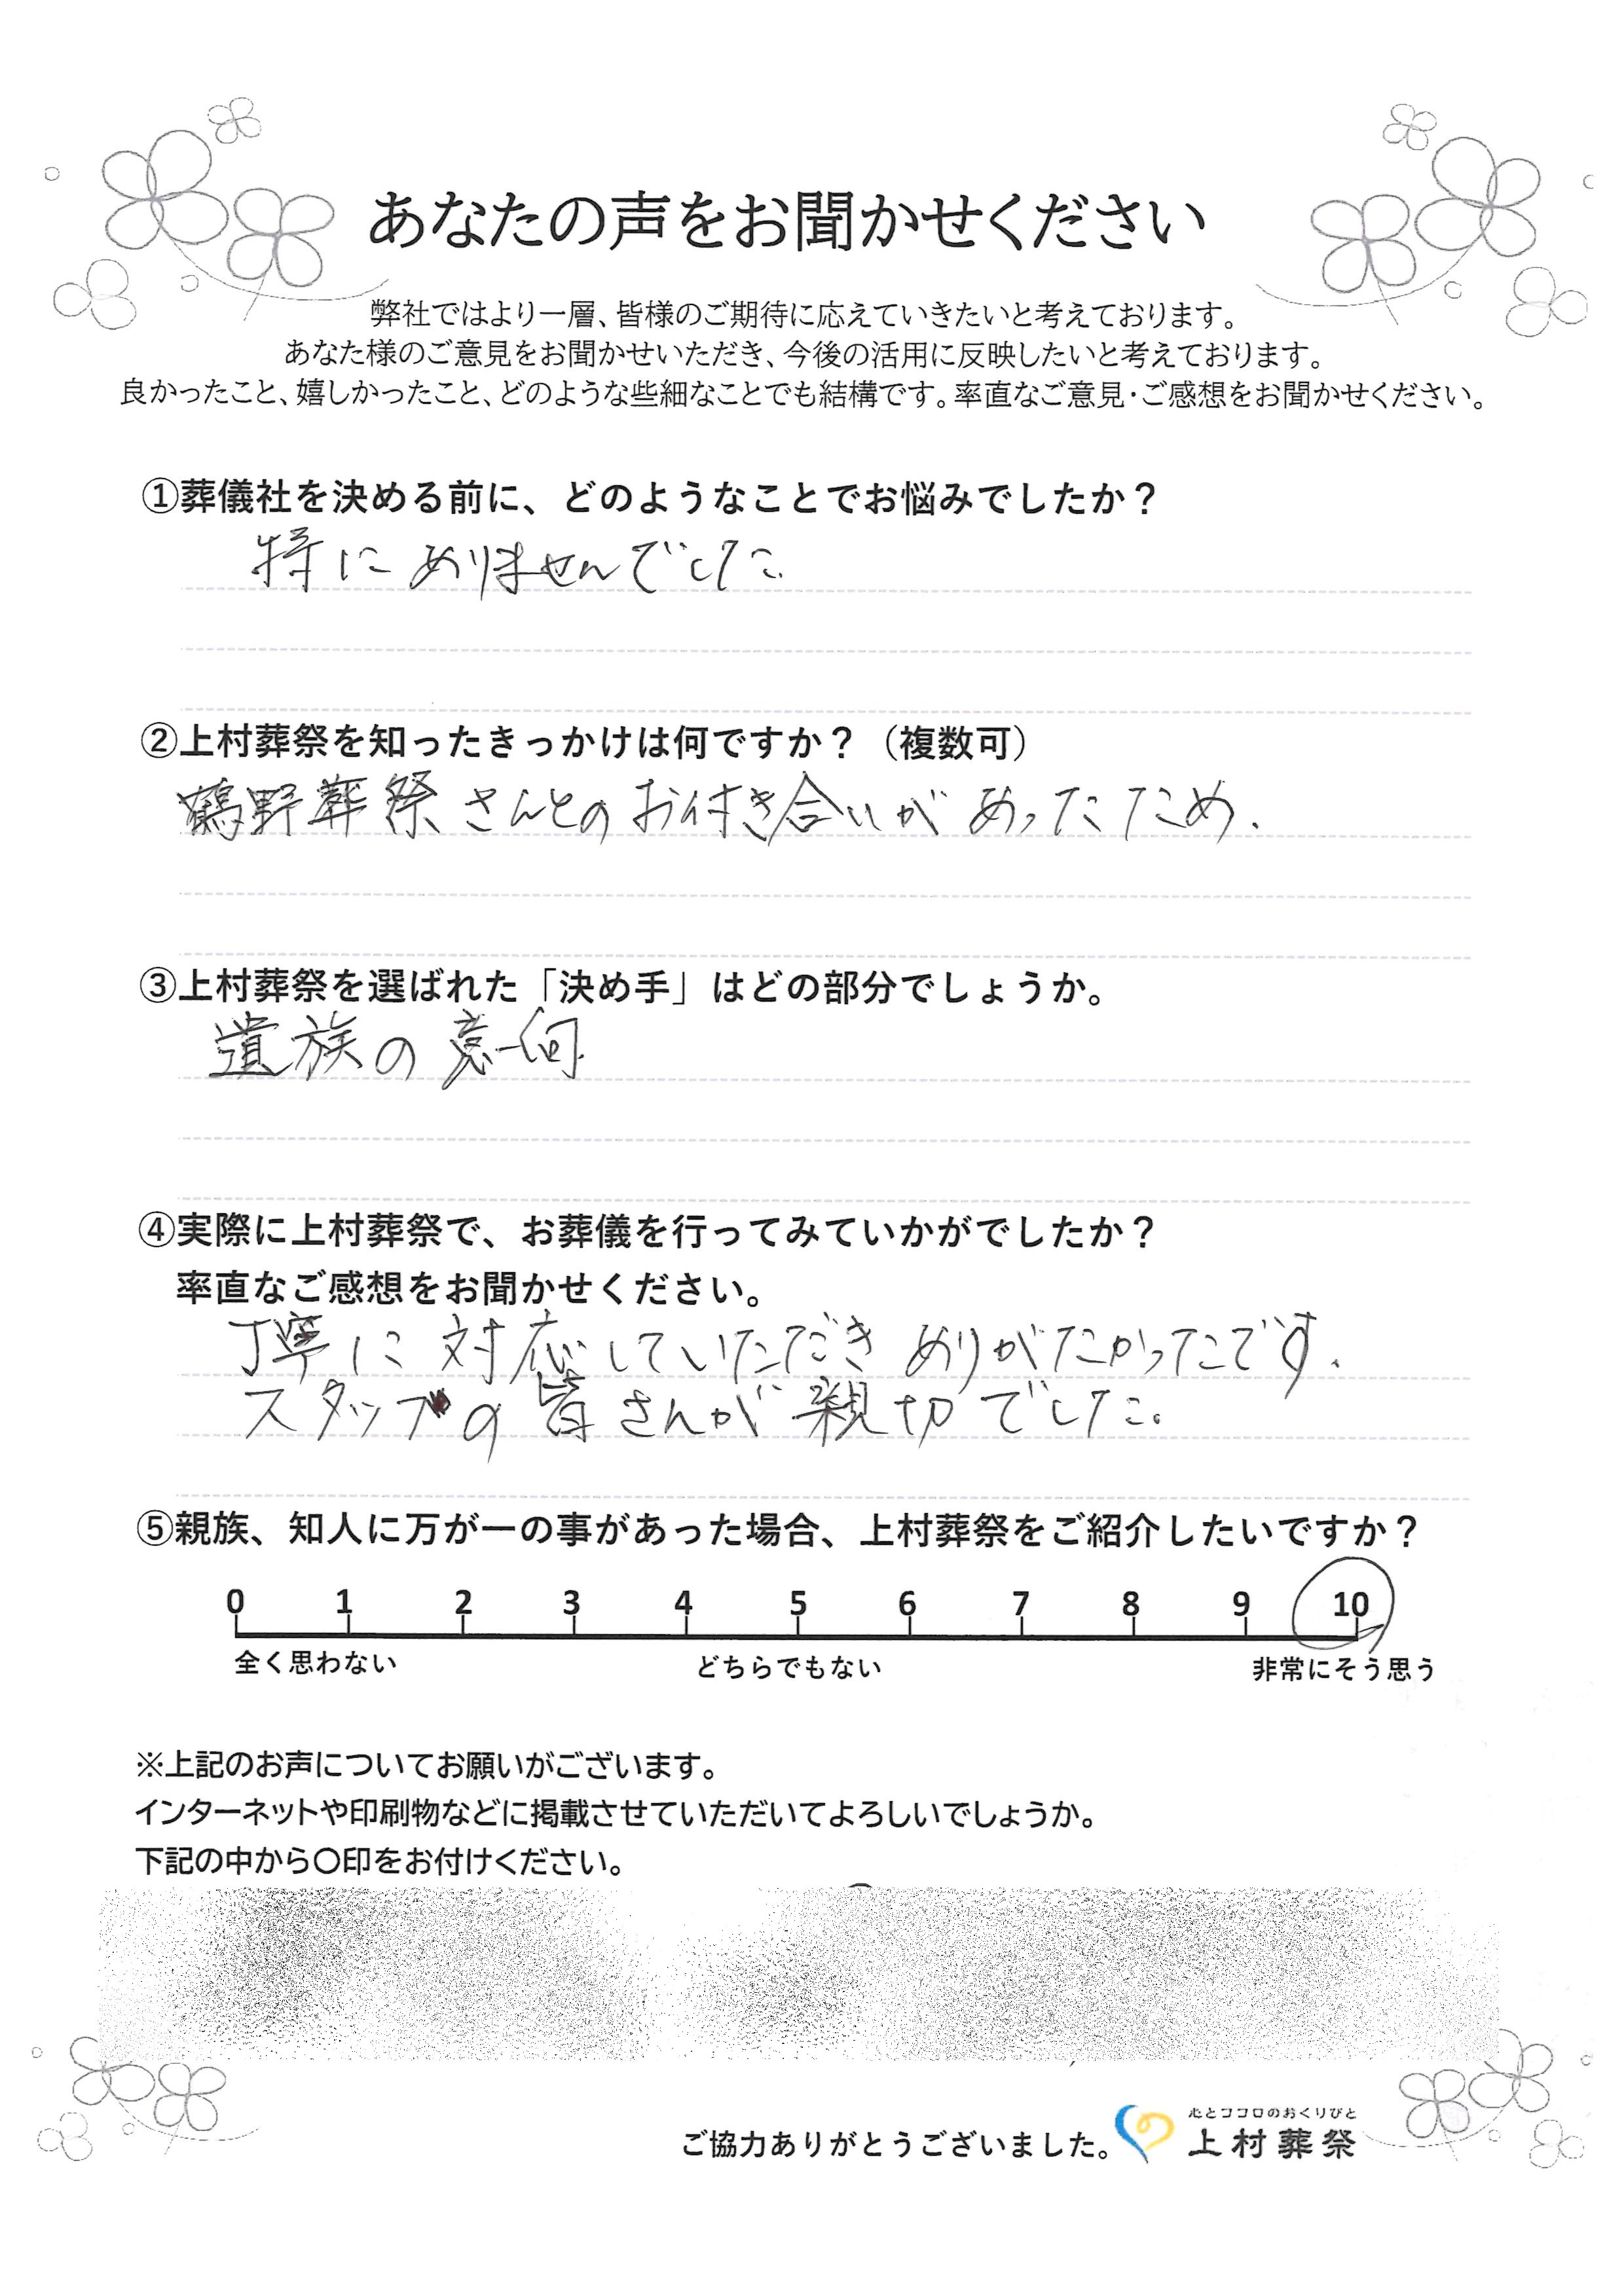 あなたの声をお聞かせください
弊社ではより一層、皆様のご期待に応えていきたいと考えております。
あなた様のご意見をお聞かせいただき、今後の活用に反映したいと考えております。
良かったこと、嬉しかったこと、どのような些細なことでも結構です。率直なご意見・ご感想をお聞かせください。
①葬儀社を決める前に、どのようなことでお悩みでしたか？
特にありませんでした
②上村葬祭を知ったきっかけは何ですか？（複数可）
鶴野葬祭さんとのお付き合いがあったため.
③上村葬祭を選ばれた「決め手」はどの部分でしょうか。
遺族の意向
④実際に上村葬祭で、お葬儀を行ってみていかがでしたか？
率直なご感想をお聞かせください。
丁寧に対応していただきありがたかったです.
スタッフの皆さんが親切でした。
⑤親族、知人に万が一の事があった場合、上村葬祭をご紹介したいですか？
0 1 2 3 4 5 6 7 8 9 10
全く思わない どちらでもない 非常にそう思う
※上記のお声についてお願いがございます。
インターネットや印刷物などに掲載させていただいてよろしいでしょうか。
下記の中から〇印をお付けください。
心とココロのおくりびと
ご協力ありがとうございました。 上村葬祭